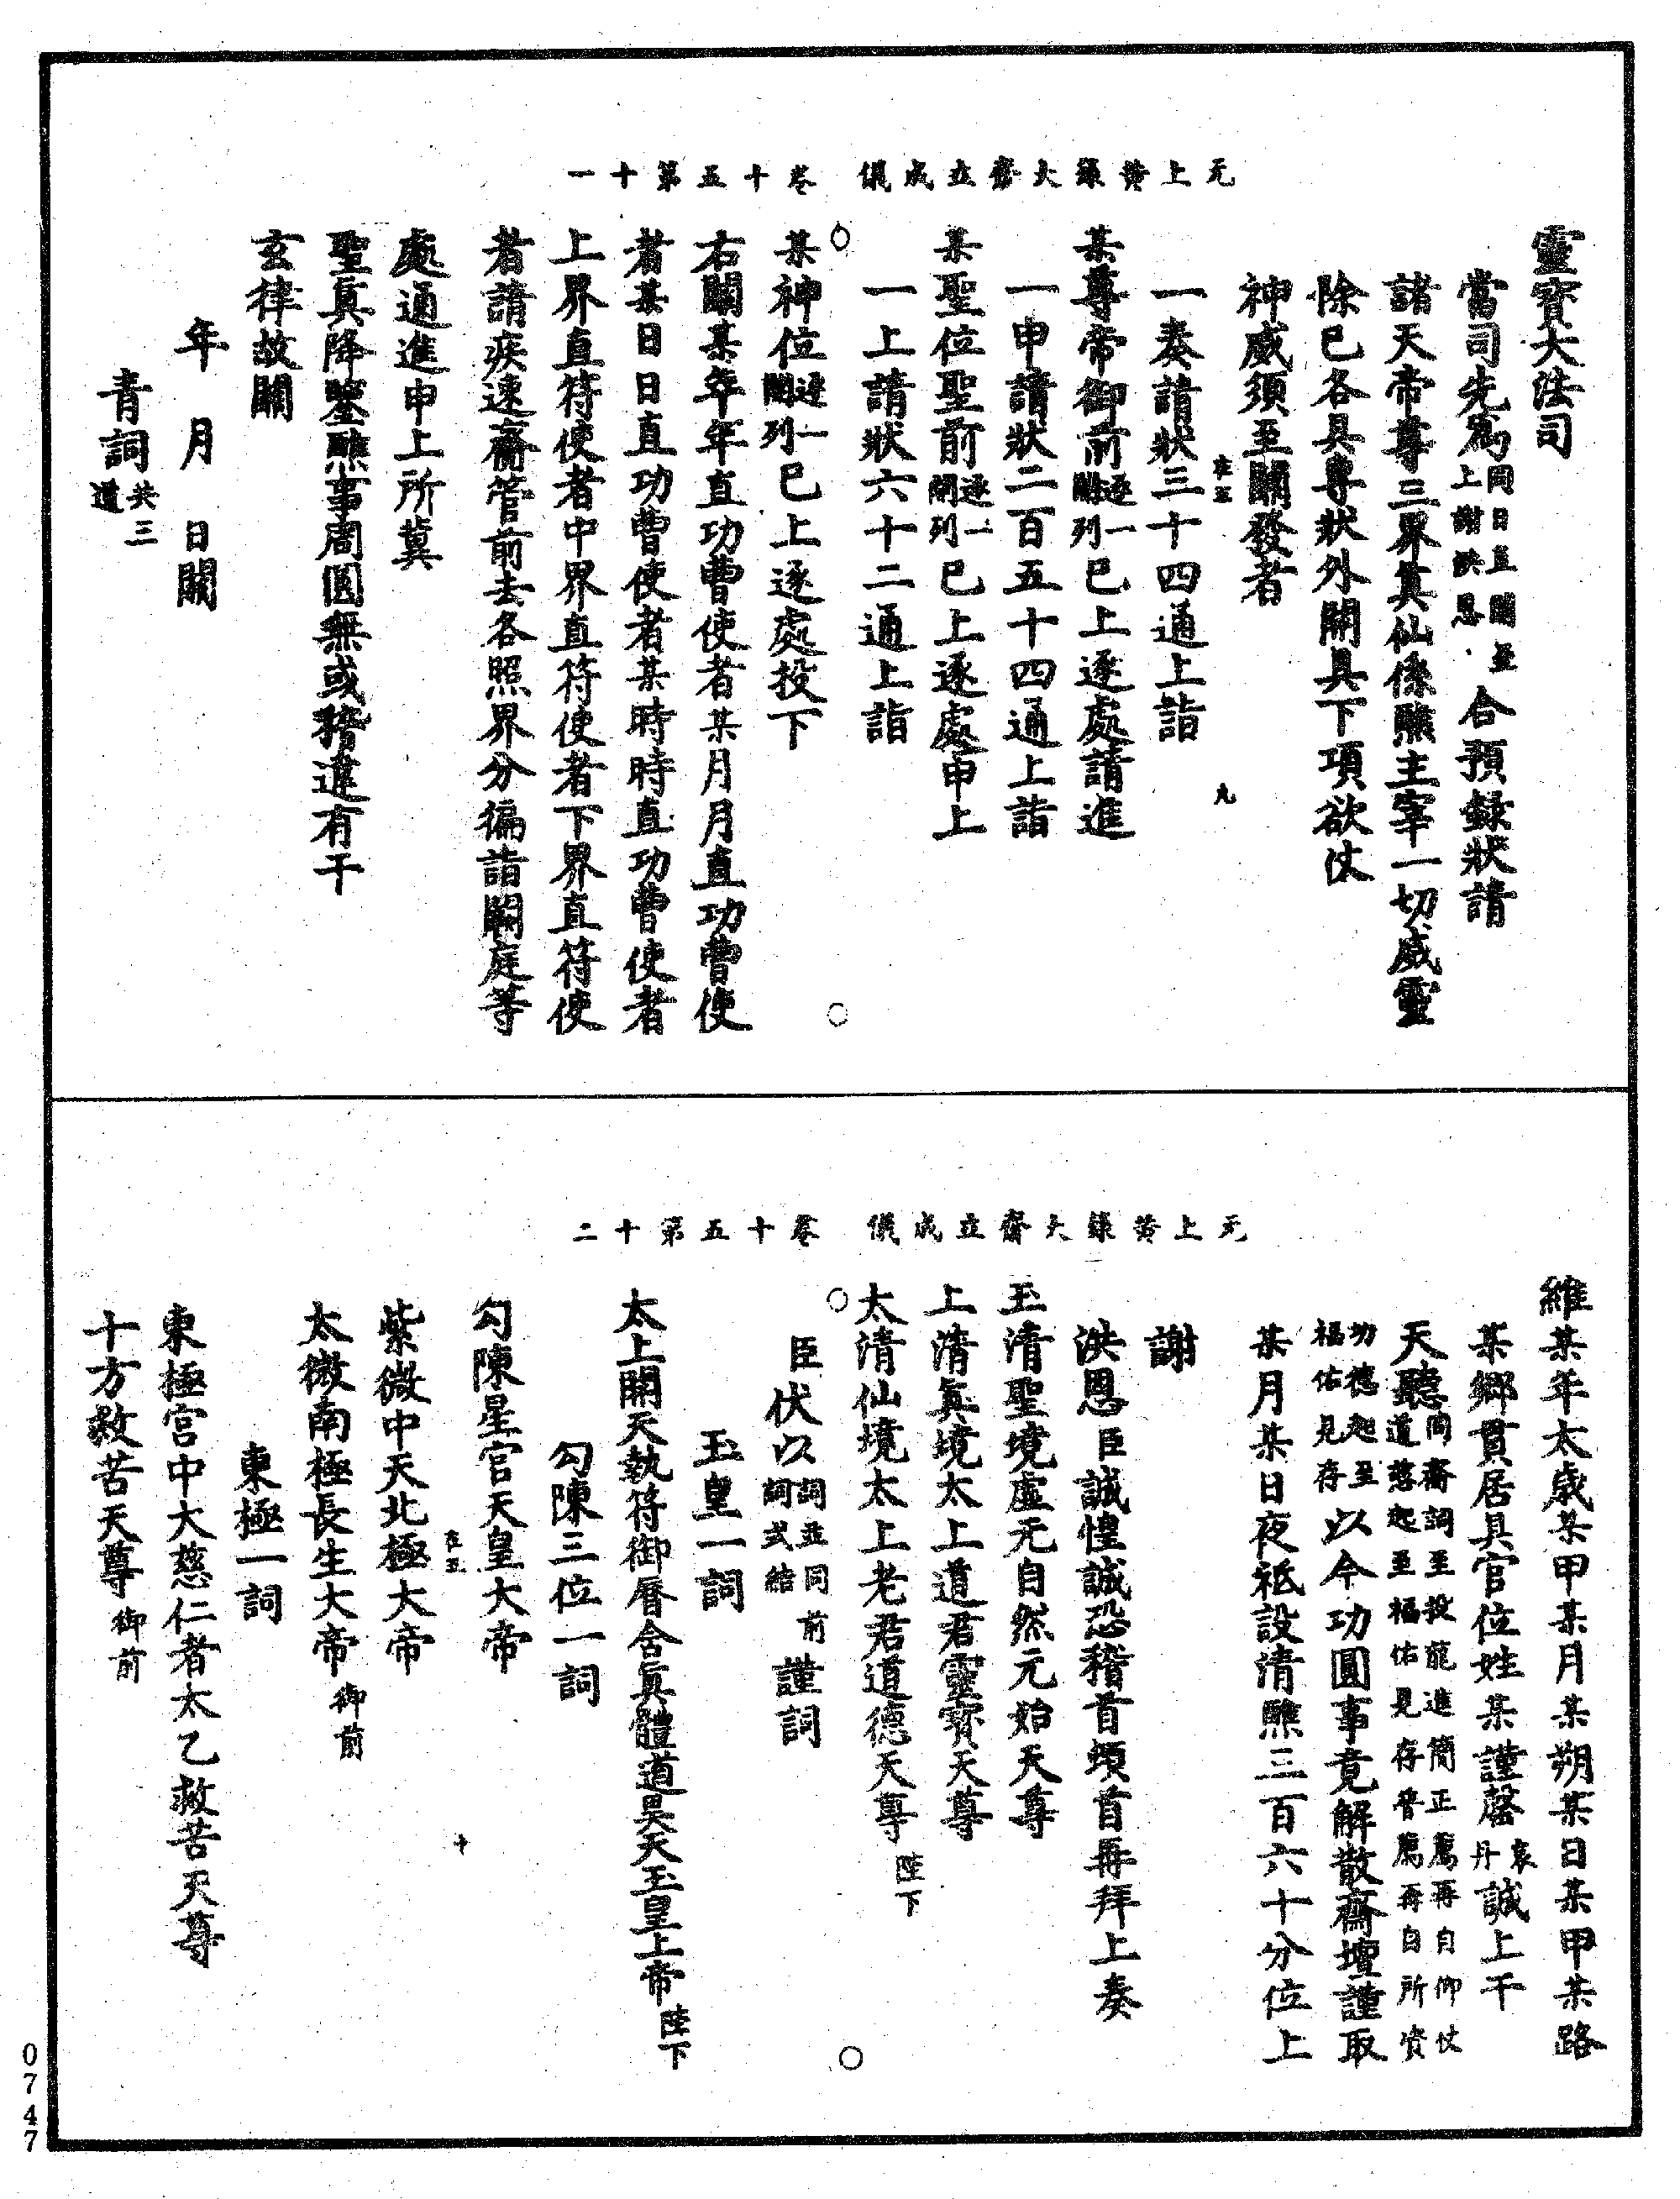 元上黃籙大齋立成儀　卷十五第十一
靈寶大法司
當司先爲同日至關至上謝洪恩合預錄狀請
諸天帝尊三界眞仙係醮主宰一切威靈
除已各具專狀外開具下項欲仗
神威須至關發者
在五　九
一奏請狀三十四通上詣
某尊帝御前逐一開列已上逐處請進
一申請狀二百五十四通上詣
某聖位聖前逐一開列已上逐處申上
一上請狀六十二通上詣
某神位逐一開列已上逐處投下
右關某年年直功曹使者某月月直功曹使
者某日日直功曹使者某時時直功曹使者
上界直符使者中界直符使者下界直符使
者請疾速齋管前去各照界分徧詣闕庭等
處通進申上所冀
聖眞降鑒醮事周圓無或稽違有干
玄律故關
年　月　日關
青詞共三道
元上黃籙大齋立成儀　卷十五第十二
維某年太歲某甲某月某朔某日某甲某路
某鄉貫居具官位姓某謹罄丹衷誠上干
天聽同齋詞至投龍進簡正薦再自仰仗道蔭起至福佑見存普薦再自所資
功德起至福佑見存以今功圓事竟解散齋壇謹取
某月某日夜祗設清醮三百六十分位上
謝
洪恩臣誠惶誠恐稽首頓首再拜上奏
玉清聖境虛无自然元始天尊
上清眞境太上道君靈寶天尊
太清仙境太上老君道德天尊陛下
臣伏以詞並同前詞式結謹詞
玉皇一詞
太上開天執符御曆含眞體道昊天玉皇上帝陛下
勾陳三位一詞
勾陳星宮天皇大帝
在五　十
紫微中天北極大帝
太微南極長生大帝御前
東極一詞
東極宮中大慈仁者太乙救苦天尊
十方救苦天尊御前
0747